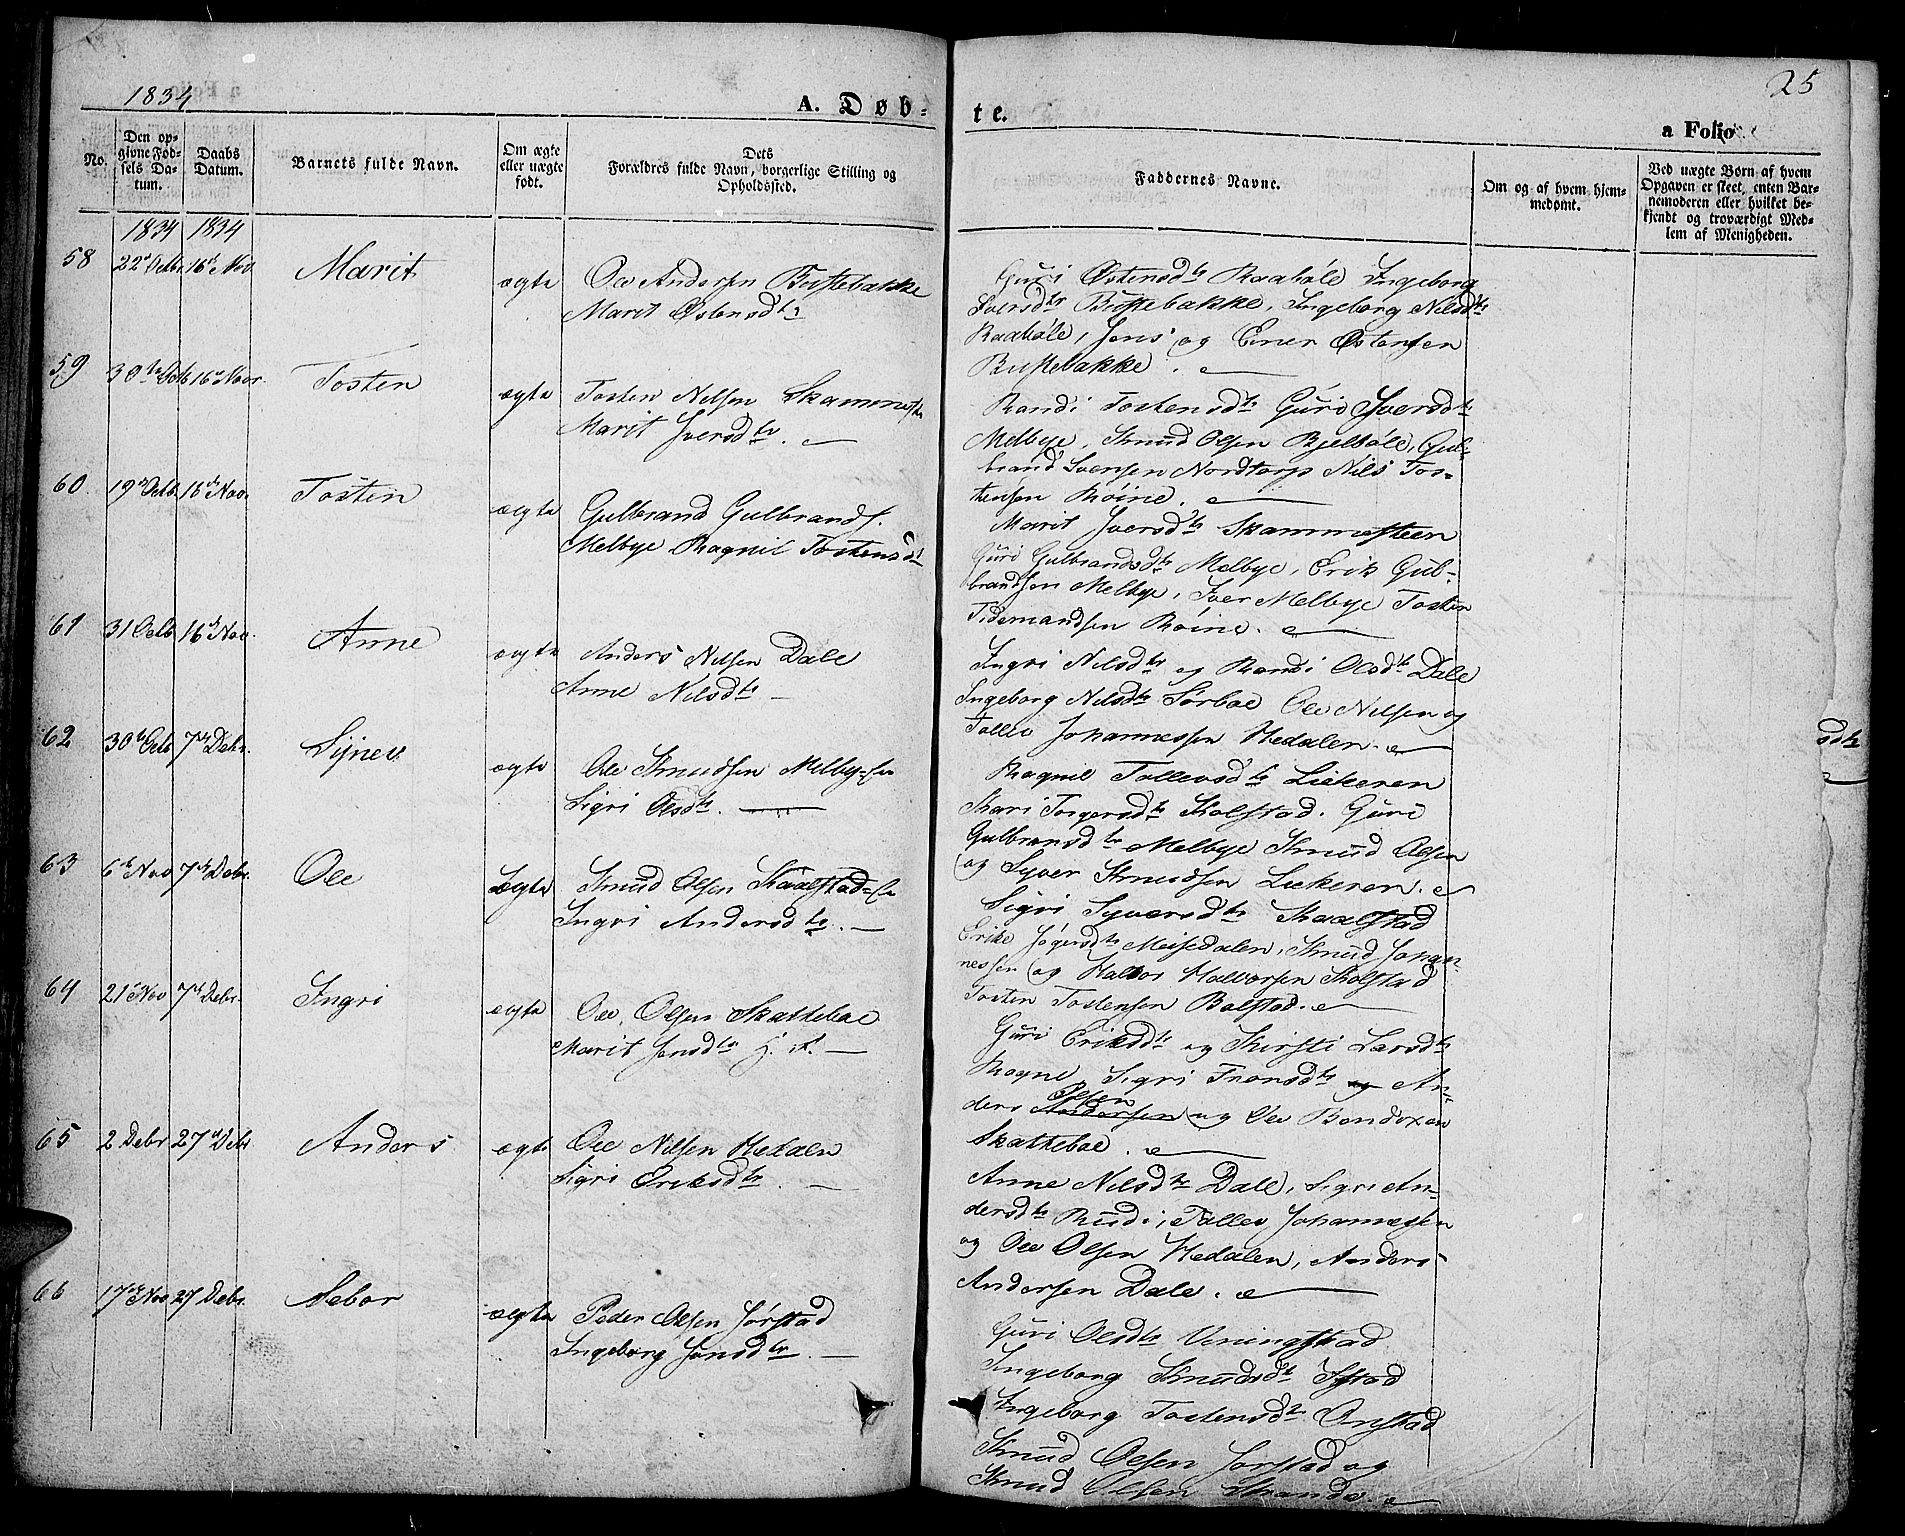 1834
A. Døb-
te.
25
a Folio
No.
Den op-
givne Fød-
sels Da-
tum.
Daabs
Datum.
Barnets fulde Navn.
Om ægte
eller uægte
født.
Dets
Forældres fulde Navn, borgerlige Stilling og
Opholdssted.
Faddernes Navne.
Om og af hvem hjem-
medøbt.
Ved uægte Børn af hvem
Opgaven er skeet, enten Bar-
nemoderen eller hvilket be-
kjendt og troværdigt Med-
lem af Menigheden.
1834 1834
58 22 Octbr 16 Nov Marit ægte Ole Andersen Bustebakke
Marit Østensdtr
Guri Østensdtr Raahåle Ingeborg
Iversdtr Bustebakke, Ingeborg Nilsdtr
Raahåle, Jens og Ener Østensen
Bustebakke.
59 30te Octb 16 Novr. Tosten ægte Tosten Nilsen Skammesten
Marit Iversdtr.
Randi Tostensdtr Guri Iversdtr
Melbye, Knud Olsen Bjelbøle, Gul-
brand Svensen Nordtorp Nils Tos-
tensen Røine.
60 19 Octb. 16 Nov. Tosten ægte Gulbrand Gulbrands.
Melbye Ragnil Tostensdt
Marit Iversdtr Skammesteen
Guri Gulbrandsdtr Melbye, Erik Gul-
brandsen Melbye, Iver Melbye Tosten
Tidemandsen Røine.
61 31 Octb 16 Nov. Anne ægte Anders Nilsen Dale
Anne Nilsdtr
Ingri Nilsdtr og Randi Olsdtr Dale
Ingeborg Nilsdtr Sørboe Ole Nilsen og
Tollev Johannessen Hedalen.
62 30te Octb 7de Debr. Synev ægte Ole Knudsen Melbye
Sigri Olsdtr.
Ragnil Tollevsdtr Liekeren
Kari Torgersdtr Kolstad. Guri
Gulbransdtr Melbye Knud Olsen
og Syver Knudsen Liekeren.
63 6te Nov 7de Debr. Ole Ægte Knud Olsen Kaalstad
Ingri Andersdtr.
Sigri Syversdtr Kaalstad
Meisedalen, Knud Johan-
nessen og Halvor Halvorsen Kolstad
Tosten Tostensen Bolstad.
64 21 Nov 7de Debr. Ingri ægte Ole Olsen Skatteboe
Marit Jonsdtr
Guri Eriksdtr og Kirsti Larsdtr
Rogne, Sigri Fransdtr og An-
Olsen
ders Andersen og Ole Bendixen
Skatteboe.
65 2 Debr 27 Debr Anders ægte Ole Nilsen Hedalen
Sigri Eriksdtr.
Anne Nilsdtr Dale, Sigri An-
dersdtr Rudi, Tollev Johannessen
og Ole Olsen Hedalen, Anders
Andersen Dale.
66 17de Nov 27 Debr. Sebor ægte Peder Olsen Jørstad
Ingeborg Jonsdtr.
Guri Olsdtr Veningstad
Ingeborg Knudsdtr Ystad
Ingeborg Tostensdtr Onstad
Knud Olsen Jorstad og
Knud Olsen Strande.
sdtr